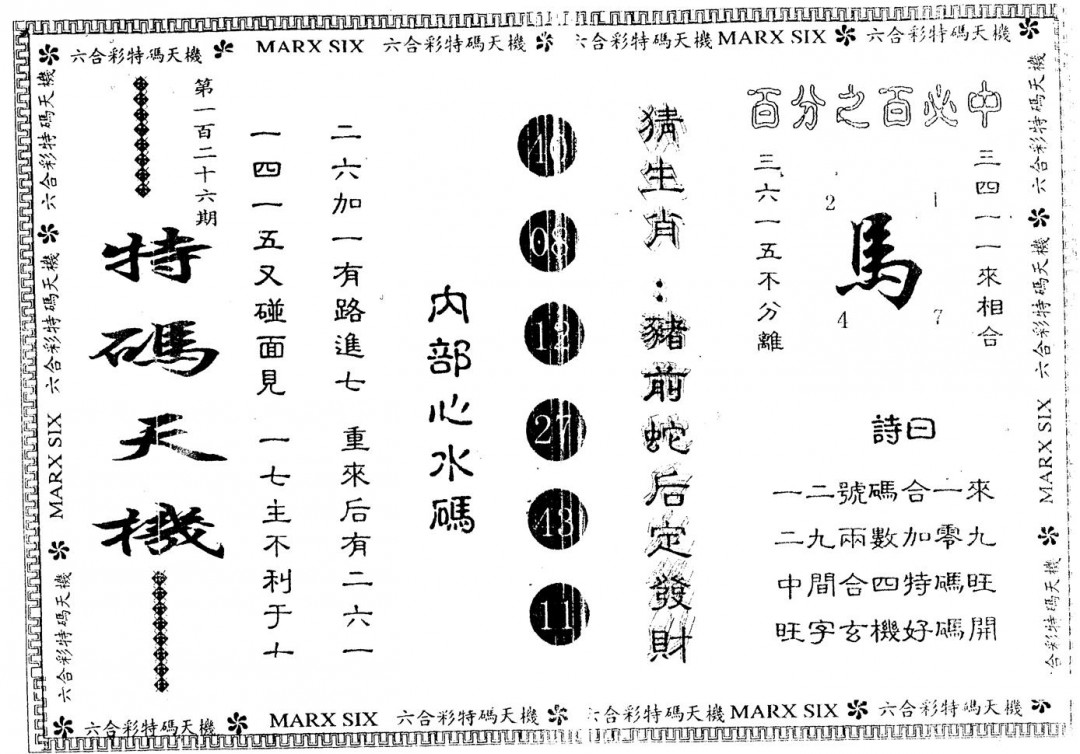 六合彩特碼天機 MARX SIX 六合彩特碼天機 六合彩特碼天機 MARX SIX 六合彩特碼天機
百分之百必中
三四一一來相合
2 1
馬
4 7
三六一五不分離
詩曰
一二號碼合一來
二九兩數加零九
中間合四特碼旺
旺字玄機好碼開
猜生肖：豬前蛇后定發財
08
12
27
11
內部心水碼
二六加一有路進七 重來后有二六一
一四一五又碰面見 一七主不利于十
第一百二十六期
特碼天機
六合彩特碼天機 六合彩特碼天機 MARX SIX 六合彩特碼天機
六合彩特碼天機 六合彩特碼天機 MARX SIX 合彩特碼天機
六合彩特碼天機 MARX SIX 六合彩特碼天機 六合彩特碼天機 MARX SIX 六合彩特碼天機